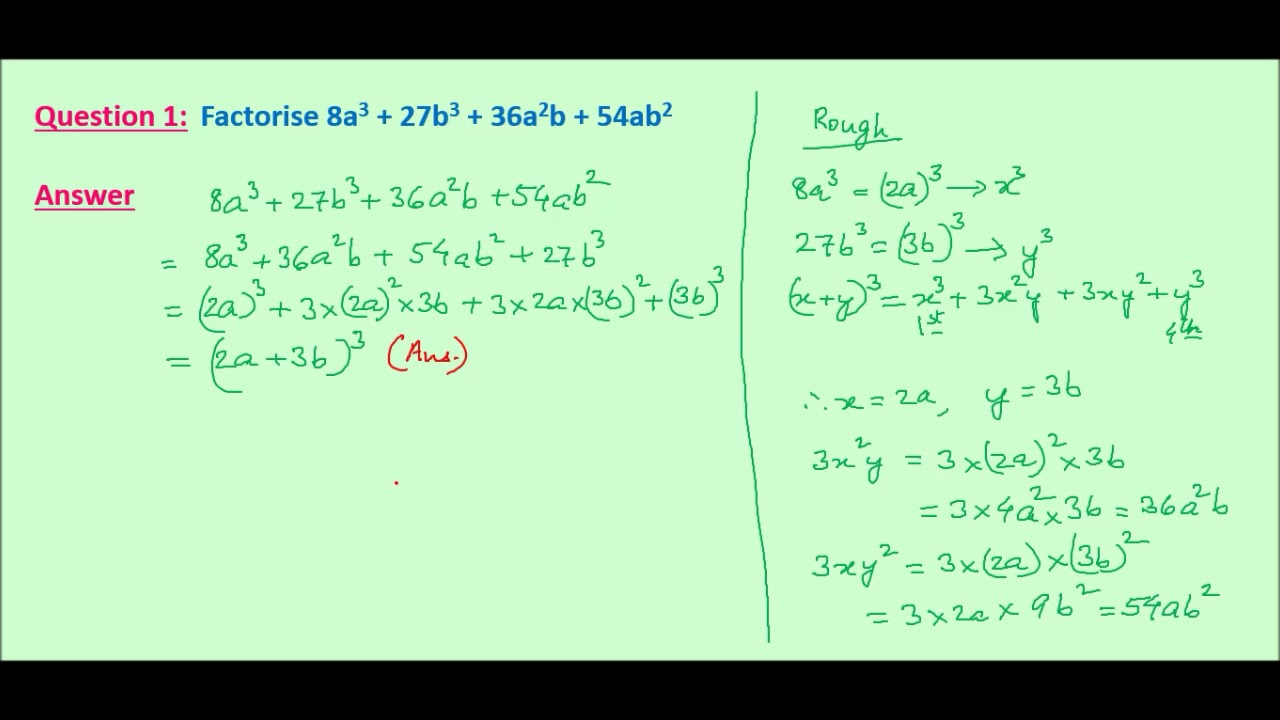 Question 1: Factorise 8a³ + 27b³ + 36a²b + 54ab²
Answer
8a³ + 27b³ + 36a²b + 54ab²
= 8a³ + 36a²b + 54ab² + 27b³
= (2a)³ + 3×(2a)²×3b + 3×2a×(3b)² + (3b)³
= (2a + 3b)³ (Ans.)
Rough
8a³ = (2a)³ → x³
27b³ = (3b)³ → y³
(x+y)³ = x³ + 3x²y + 3xy² + y³
1st 4th
∴ x = 2a, y = 3b
3x²y = 3×(2a)²×3b
= 3×4a²×3b = 36a²b
3xy² = 3×(2a)×(3b)²
= 3×2a×9b² = 54ab²